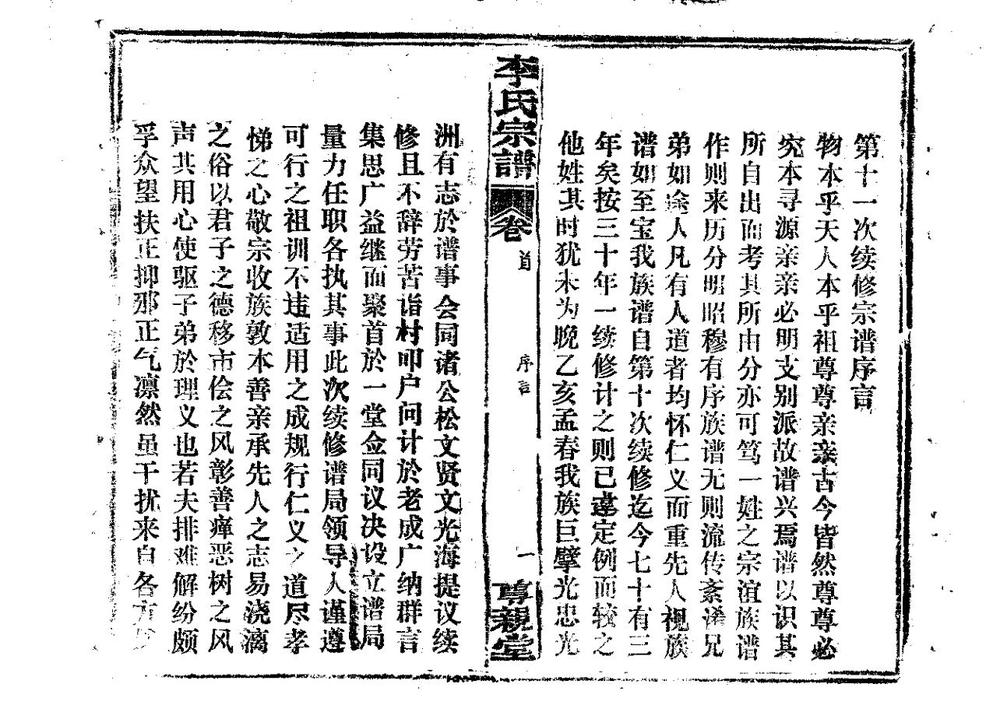 第十一次续修宗谱序言
物本乎天人本乎祖尊尊亲亲古今皆然尊尊必
究本寻源亲亲必明支别派故谱兴焉谱以识其
所自出而考其所由分亦可笃一姓之宗谊族谱
作则来历分明昭穆有序族谱无则流传紊淆兄
弟如途人凡有人道者均怀仁义而重先人视族
谱如至宝我族谱自第十次续修迄今七十有三
年矣按三十年一续修计之则已违定例而较之
他姓其时犹未为晚乙亥孟春我族巨擘光忠光
李氏宗譜
卷首
序言
一
尊親堂
洲有志於谱事会同诸公松文贤文光海提议续
修且不辞劳苦诣村叩户问计於老成广纳群言
集思广益继而聚首於一堂佥同议决设立谱局
量力任职各执其事此次续修谱局领导人谨遵
可行之祖训不违适用之成规行仁义之道尽孝
悌之心敬宗收族敦本善亲承先人之志易浇漓
之俗以君子之德移市侩之风彰善瘅恶树之风
声共用心使驱子弟於理义也若夫排难解纷颇
孚众望扶正抑邪正气凛然虽干扰来自各方